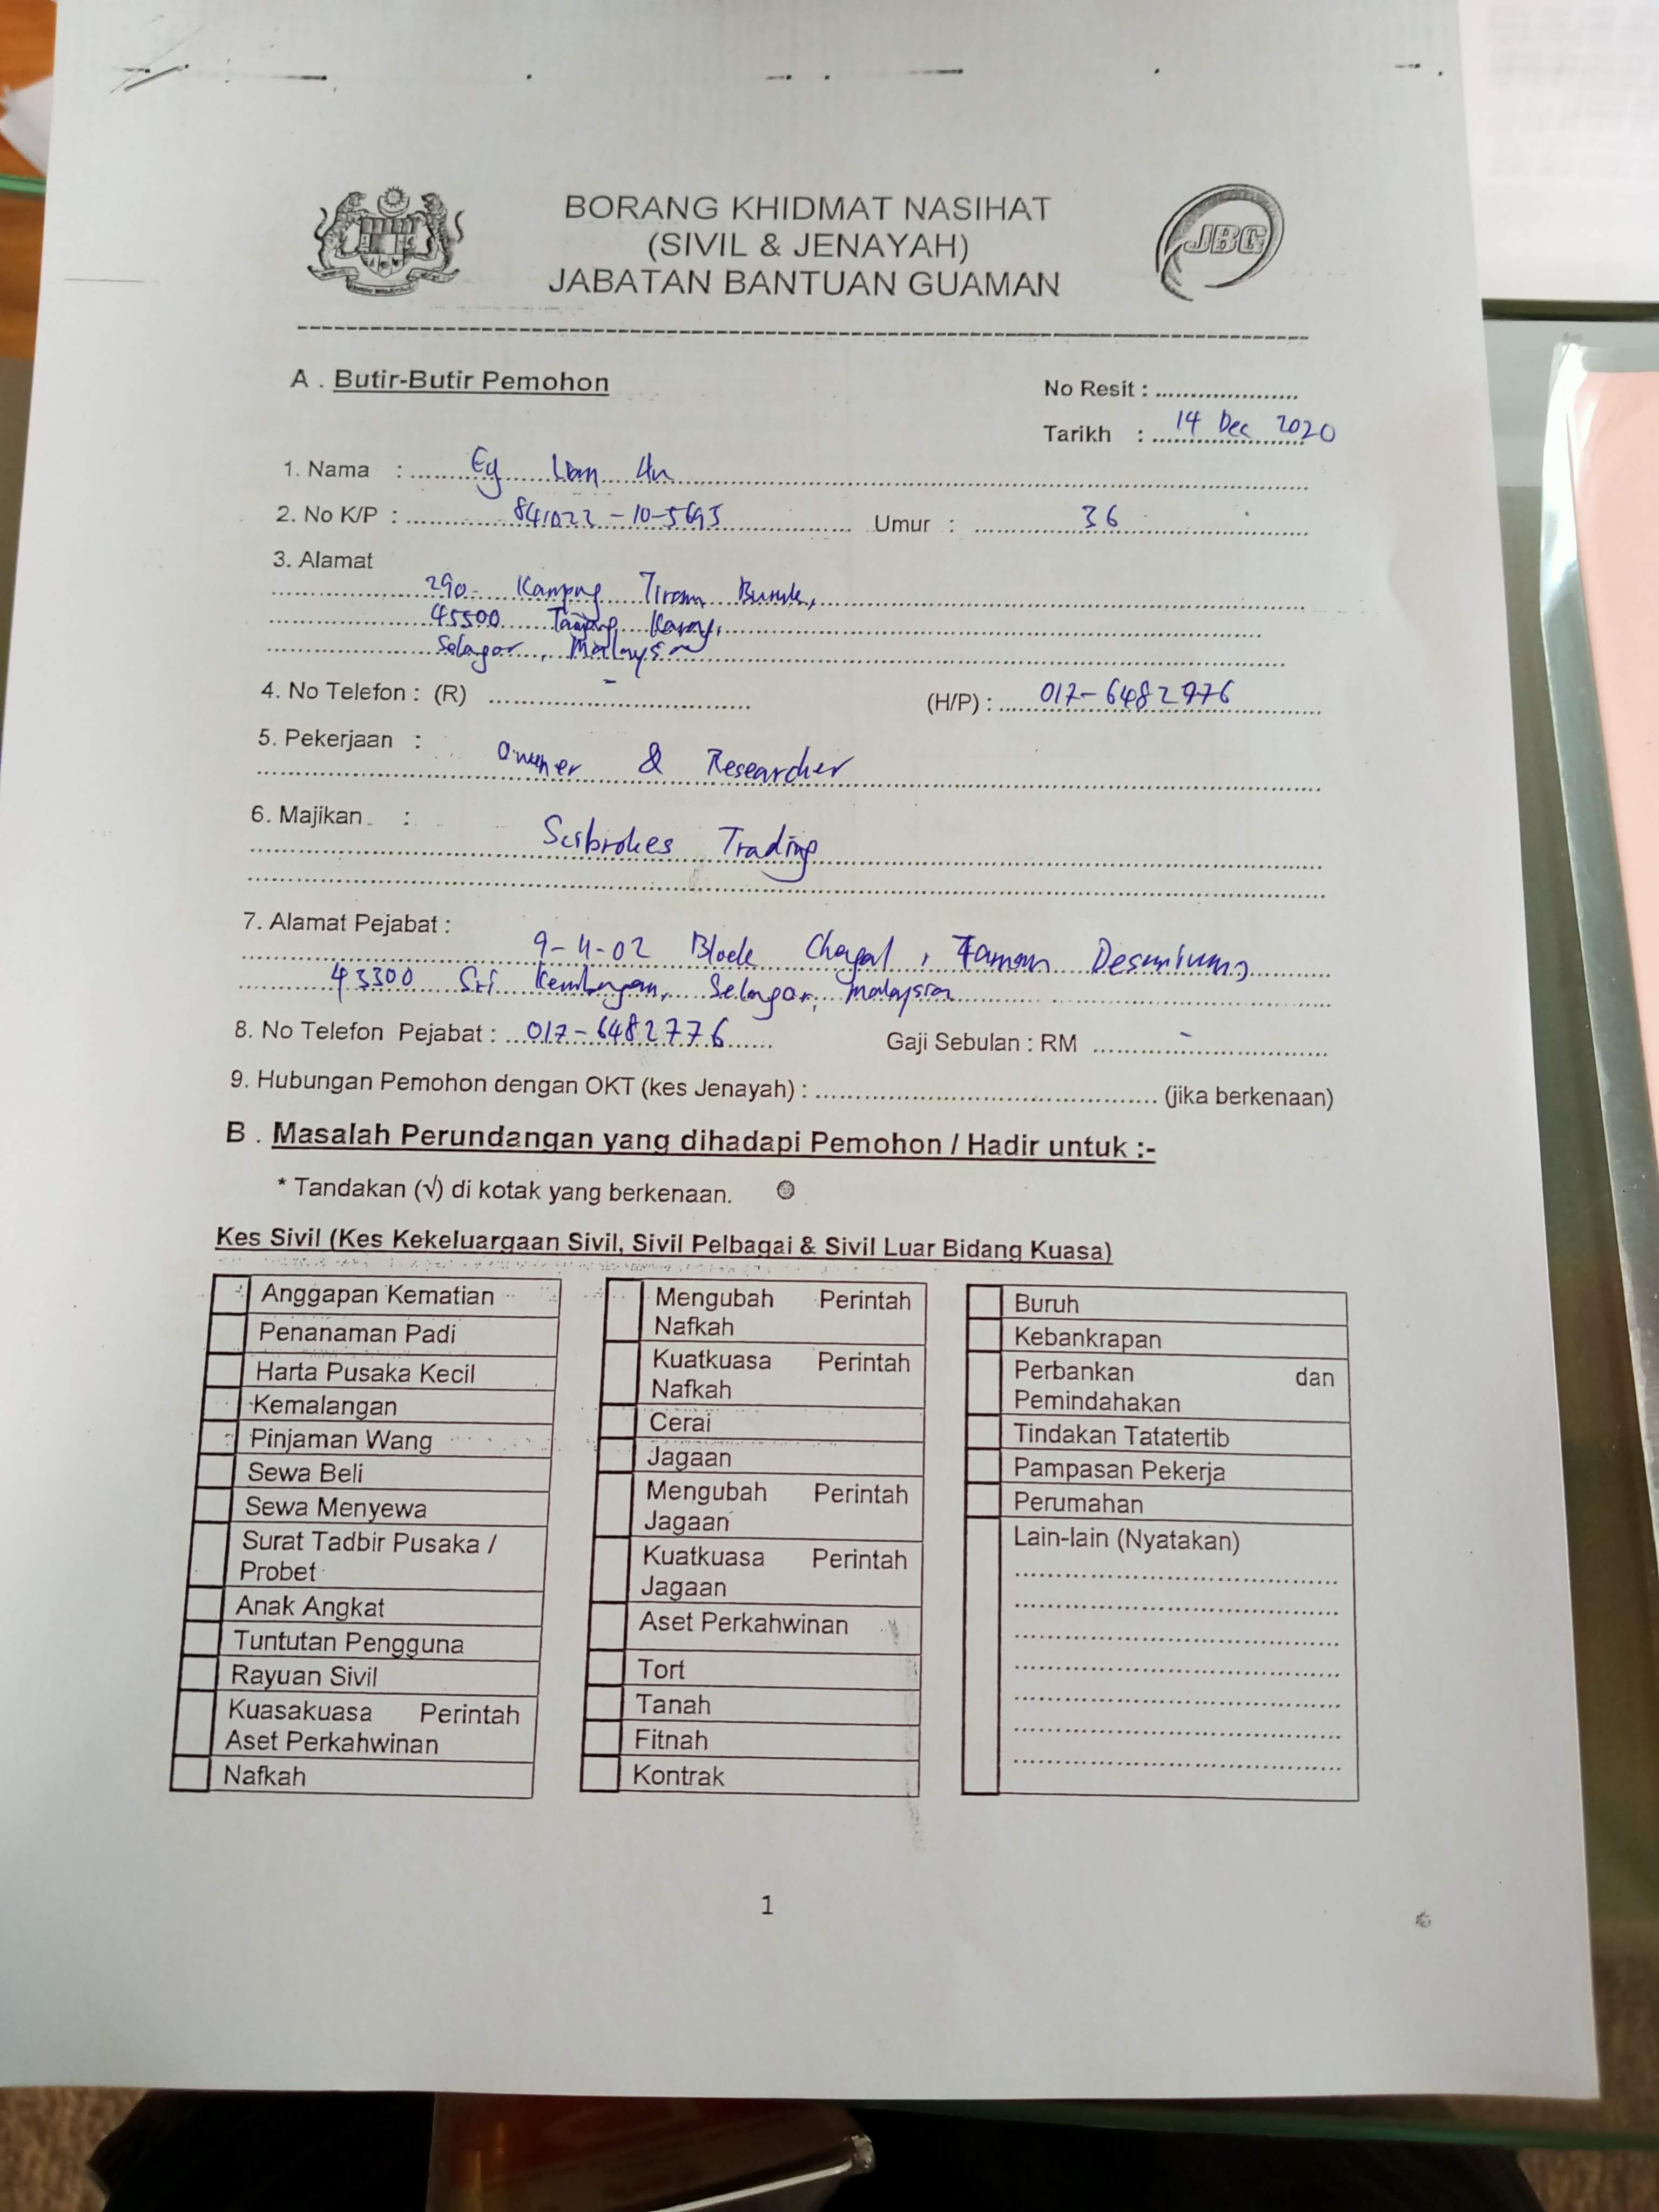 BORANG KHIDMAT NASIHAT
(SIVIL & JENAYAH)
JABATAN BANTUAN GUAMAN
JBG
A . Butir-Butir Pemohon
No Resit : ......................
Tarikh : 14 Dec 2020
1. Nama : Eg
2. No K/P : Umur : 36
3. Alamat
290 Kampung
45500
Malaysia
4. No Telefon : (R) - (H/P) :
5. Pekerjaan :
Owner & Researcher
6. Majikan :
Scibrokes Trading
7. Alamat Pejabat :
9-4-02 Block Taman
43300 Sri Kembangan, Selangor, Malaysia
8. No Telefon Pejabat : 017-6482776 Gaji Sebulan : RM -
9. Hubungan Pemohon dengan OKT (kes Jenayah) : ............ (jika berkenaan)
B . Masalah Perundangan yang dihadapi Pemohon / Hadir untuk :-
* Tandakan (√) di kotak yang berkenaan.
Kes Sivil (Kes Kekeluargaan Sivil, Sivil Pelbagai & Sivil Luar Bidang Kuasa)
Anggapan Kematian
Penanaman Padi
Harta Pusaka Kecil
Kemalangan
Pinjaman Wang
Sewa Beli
Sewa Menyewa
Surat Tadbir Pusaka /
Probet
Anak Angkat
Tuntutan Pengguna
Rayuan Sivil
Kuasakuasa Perintah
Aset Perkahwinan
Nafkah
Mengubah Perintah
Nafkah
Kuatkuasa Perintah
Nafkah
Cerai
Jagaan
Mengubah Perintah
Jagaan
Kuatkuasa Perintah
Jagaan
Aset Perkahwinan
Tort
Tanah
Fitnah
Kontrak
Buruh
Kebankrapan
Perbankan dan
Pemindahakan
Tindakan Tatatertib
Pampasan Pekerja
Perumahan
Lain-lain (Nyatakan)
1